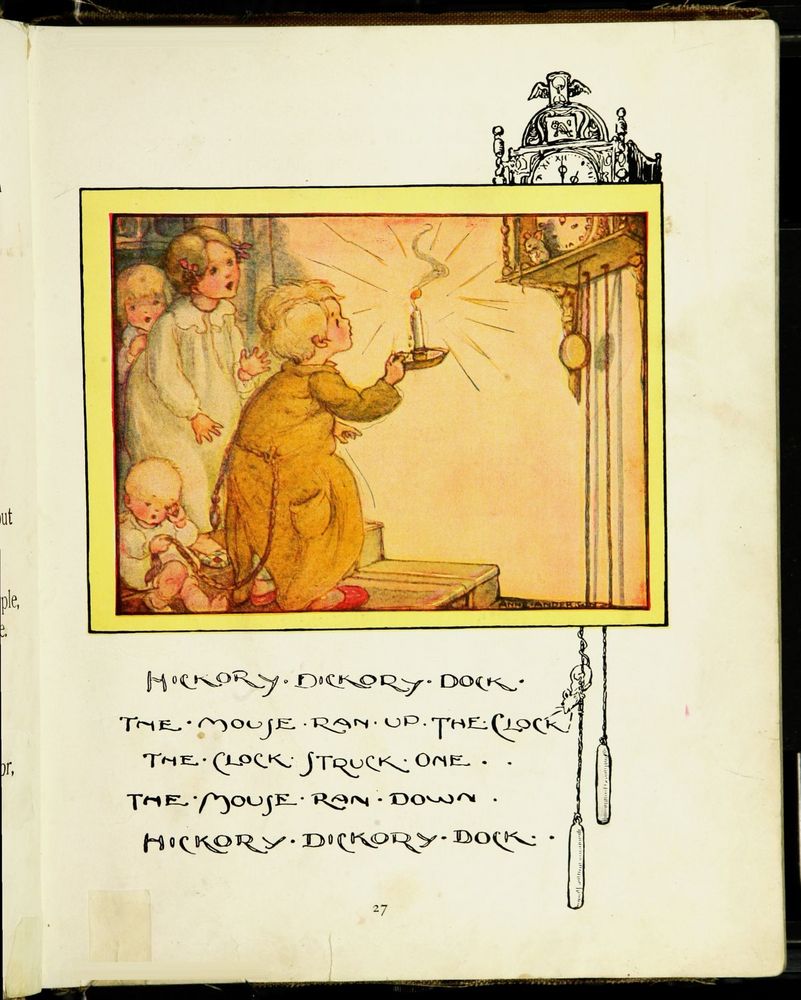 XII
ANNE ANDERSON
HICKORY · DICKORY · DOCK ·
THE · MOUSE · RAN · UP · THE · CLOCK
THE · CLOCK · STRUCK · ONE · ·
THE · MOUSE · RAN · DOWN ·
HICKORY · DICKORY · DOCK · ·
27
out
ple,
e.
or,